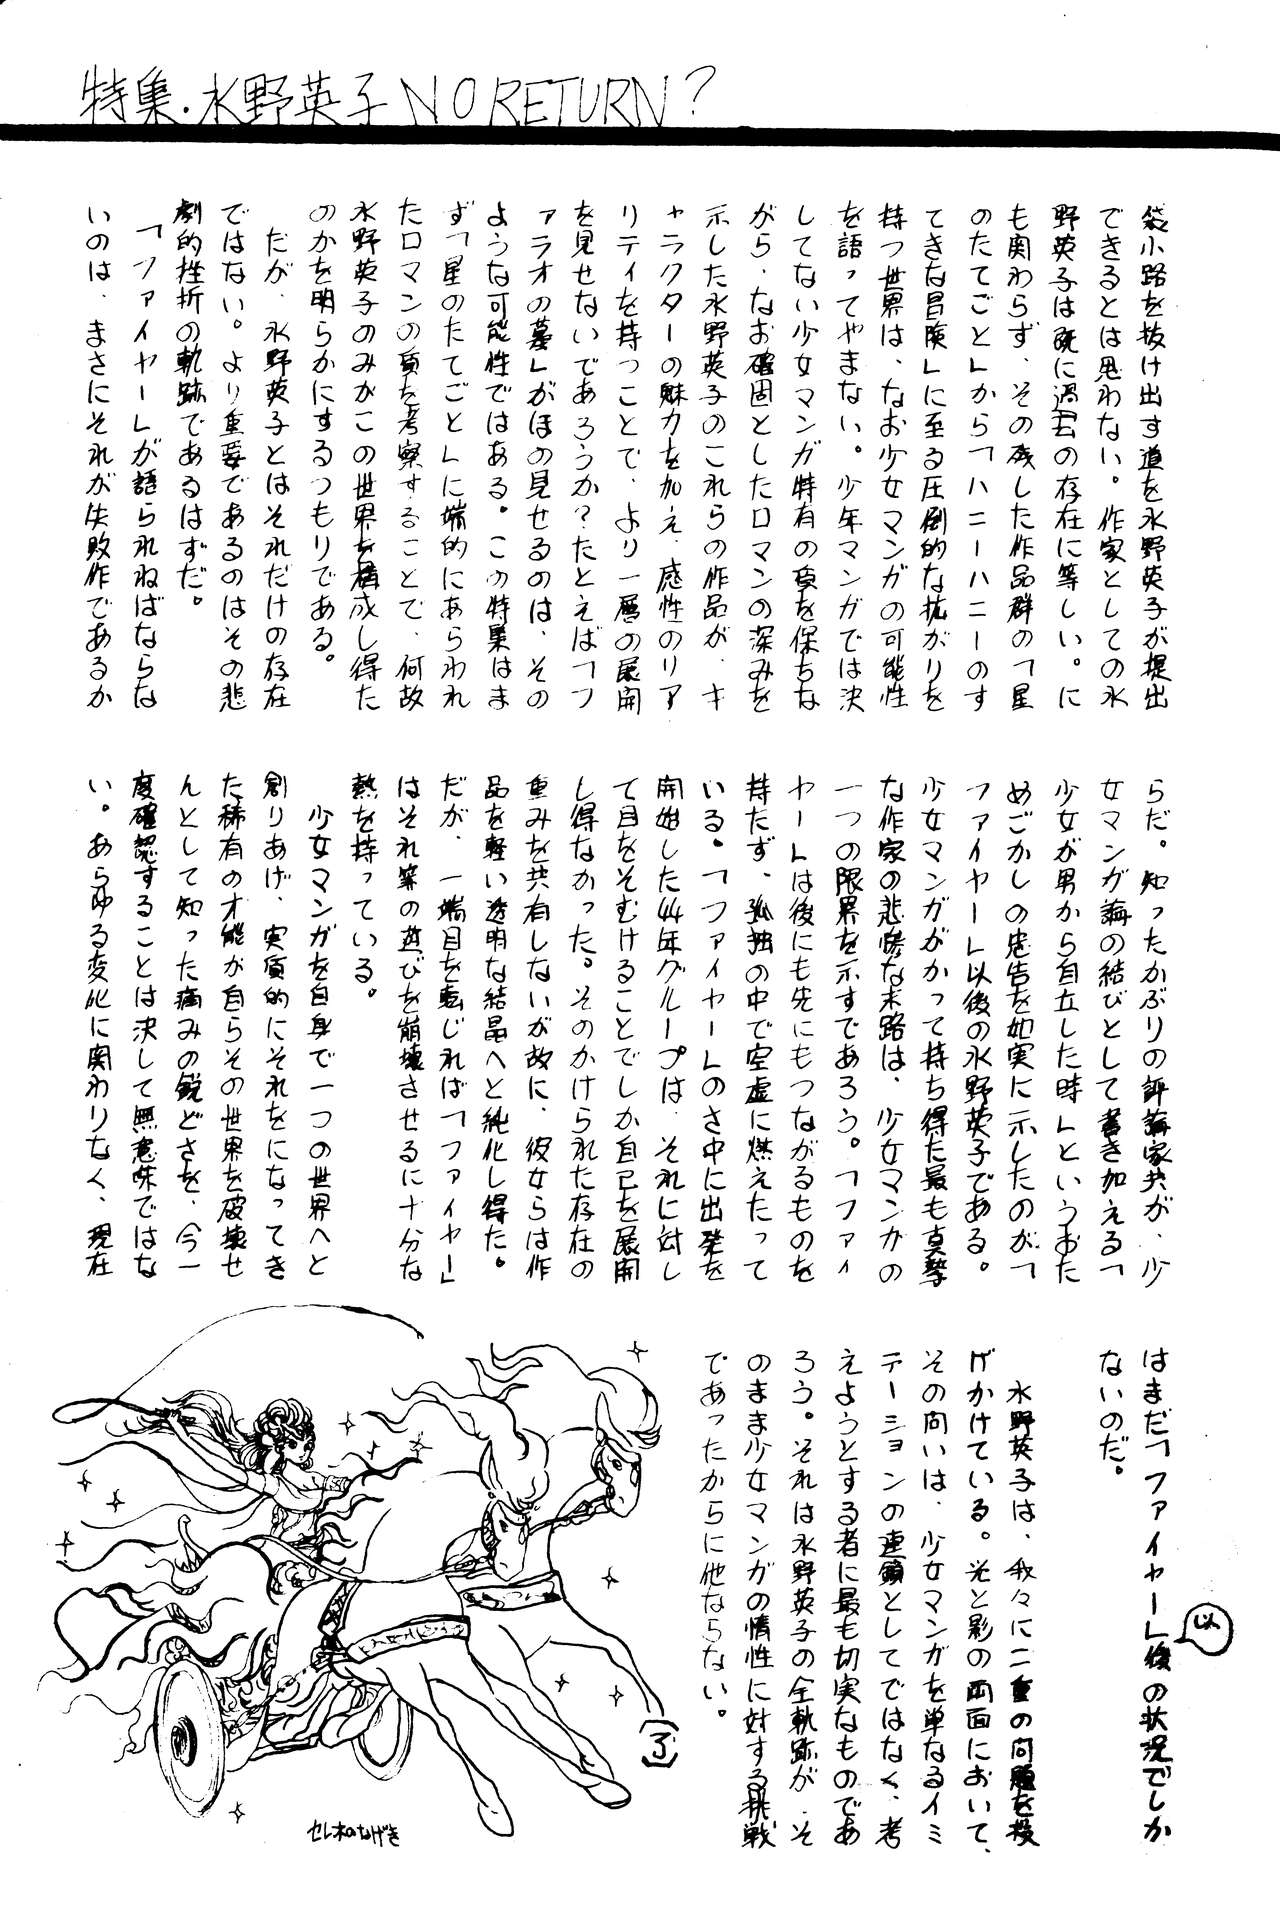 特集・水野英子 NO RETURN?
袋小路を抜け出す道を水野英子が提出
できるとは思わない。作家としての水
野英子は既に過去の存在に等しい。に
も関わらず、その残した作品群の「星
のたてごと」から「ハニーハニーのす
てきな冒険」に至る圧倒的な拡がりを
持つ世界は、なお少女マンガの可能性
を語ってやまない。少年マンガでは決
してない少女マンガ特有の質を保ちな
がら、なお確固としたロマンの深みを
示した水野英子のこれらの作品が、キ
ャラクターの魅力を加え、感性のリア
リティを持つことで、より一層の展開
を見せないであろうか?たとえば「フ
ァラオの墓」がほの見せるのは、その
ような可能性ではある。この特集はま
ず「星のたてごと」に端的にあらわれ
たロマンの質を考察することで、何故
水野英子のみがこの世界を構成し得た
のかを明らかにするつもりである。
だが、水野英子とはそれだけの存在
ではない。より重要であるのはその悲
劇的挫折の軌跡であるはずだ。
「ファイヤー」が語られねばならな
いのは、まさにそれが失敗作であるか
らだ。知ったかぶりの評論家共が、少
女マンガ論の結びとして書き加える「
少女が男から自立した時」というおた
めごかしの忠告を如実に示したのが「
ファイヤー」以後の水野英子である。
少女マンガがかって持ち得た最も真摯
な作家の悲惨な末路は、少女マンガの
一つの限界を示すであろう。「ファイ
ヤー」は後にも先にもつながるものを
持たず、孤独の中で空虚に燃えたって
いる。「ファイヤー」のさ中に出発を
開始した24年グループは、それに対し
て目をそむけることでしか自己を展開
し得なかった。そのかけられた存在の
重みを共有しないが故に、彼女らは作
品を軽い透明な結晶へと純化し得た。
だが、一端目を転じれば「ファイヤー」
はそれ等の遊びを崩壊させるに十分な
熱を持っている。
少女マンガを自身で一つの世界へと
創りあげ、実質的にそれをになってき
た稀有の才能が自らその世界を破壊せ
んとして知った痛みの鋭どさを、今一
度確認することは決して無意味ではな
い。あらゆる変化に関わりなく、現在
はまだ「ファイヤー」以後の状況でしか
ないのだ。
水野英子は、我々に二重の問題を投
げかけている。光と影の両面において、
その問いは、少女マンガを単なるイミ
テーションの連鎖としてではなく、考
えようとする者に最も切実なものであ
ろう。それは水野英子の全軌跡が、そ
のまま少女マンガの惰性に対する挑戦
であったからに他ならない。
〔了〕
セレネのなげき